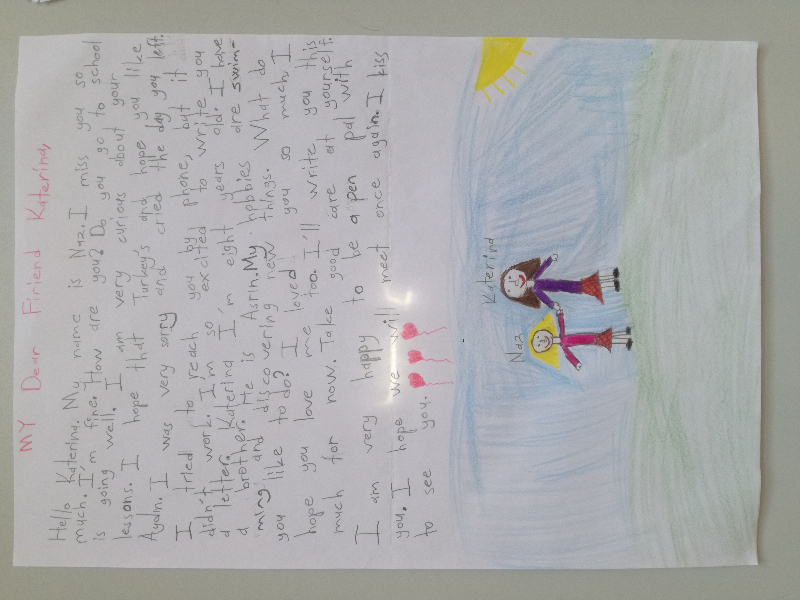 MY Dear Firiend Katerina,
Hello Katerina. My name is Naz. I miss you so
much. I'm fine. How are you? Do you go to school
is going well. I am very curious about your
lessons. I hope that Turkey's and hope you like
Again. I was very sorry and cried the day you left.
I tried to reach you by phone, but it
didn't work. I'm so excited to write you
a letter. Katerina I'm eight years old. I have
a brother. He is Asrin. My hobbies are swim-
ming and discovering new things. What do
you like to do? I loved you so much I
hope you love me too. I'll write you this
much for now. Take good care at yourself.
I am very happy to be a pen pal with
you. I hope we will meet once again. I kiss
to see you.
Naz
Katerina